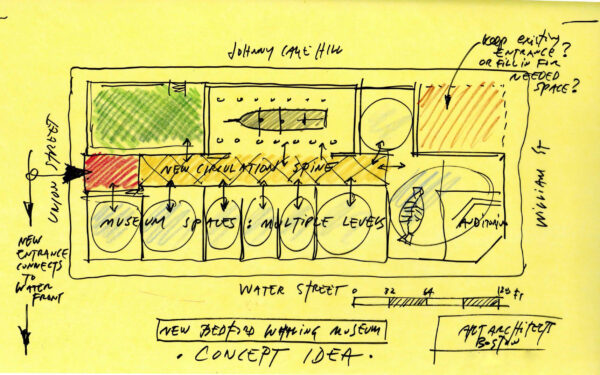 JOHNNY CAKE HILL
KEEP EXISTING
ENTRANCE?
OR FILL IN FOR
NEEDED
SPACE?
UNION STREET
NEW CIRCULATION SPINE
MUSEUM SPACES : MULTIPLE LEVELS
AUDITORIUM
WILLIAM ST
NEW
ENTRANCE
CONNECTS
TO
WATER
FRONT
WATER STREET
0 32 64 128 FT
NEW BEDFORD WHALING MUSEUM
· CONCEPT IDEA ·
ART ARCHITECT
BOSTON